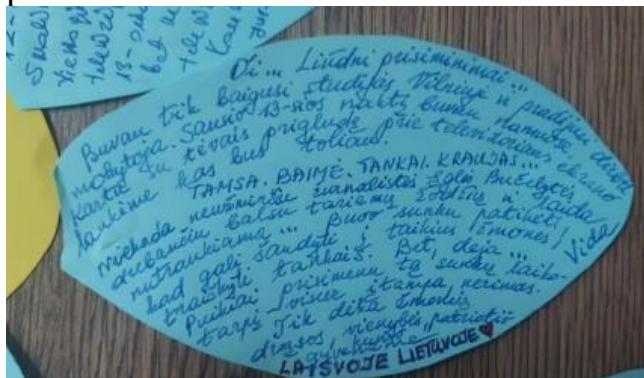 12-
Snaudž
Vienag
televizo
13-osio
bet ne
telev
Kau
gyv
Oi... Liūdni prisiminimai...
Buvau tik baigusi studijas Vilniuje ir pradėjusi dirbti
mokytoja. Sausio 13-sios naktį buvau namuose
Kartu su tėvais prigludę prie televizoriaus ekrano
laukėme kas bus toliau.
TAMSA. BAIMĖ. TANKAI. KRAUJAS...
Niekada neužmiršiu žurnalistės Eglės Bučelytės
drebančiu balsu tariamų žodžių ir
nutraukiamą... Buvo sunku patikėti,
kad gali šaudyti į taikius žmones,
traiškyti tankais. Bet, deja...
Puikiai prisimenu tą sunkų laiko-
tarpį - visur įtampa, nerimas.
Tik dėka žmonių
drąsos, vienybės, patriotiš
gyvename
LAISVOJE LIETUVOJE
Vida